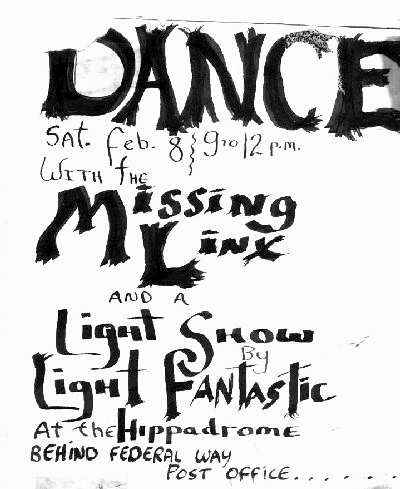 DANCE
SAT. Feb. 8 } 9 to 12 p.m.
WITH tHE
MissinG
LinX
AND A
Light SHOW
By
Light FANtAStic
At the HippadromE
BEHIND FEDERAL WAY
POST OFFICE........